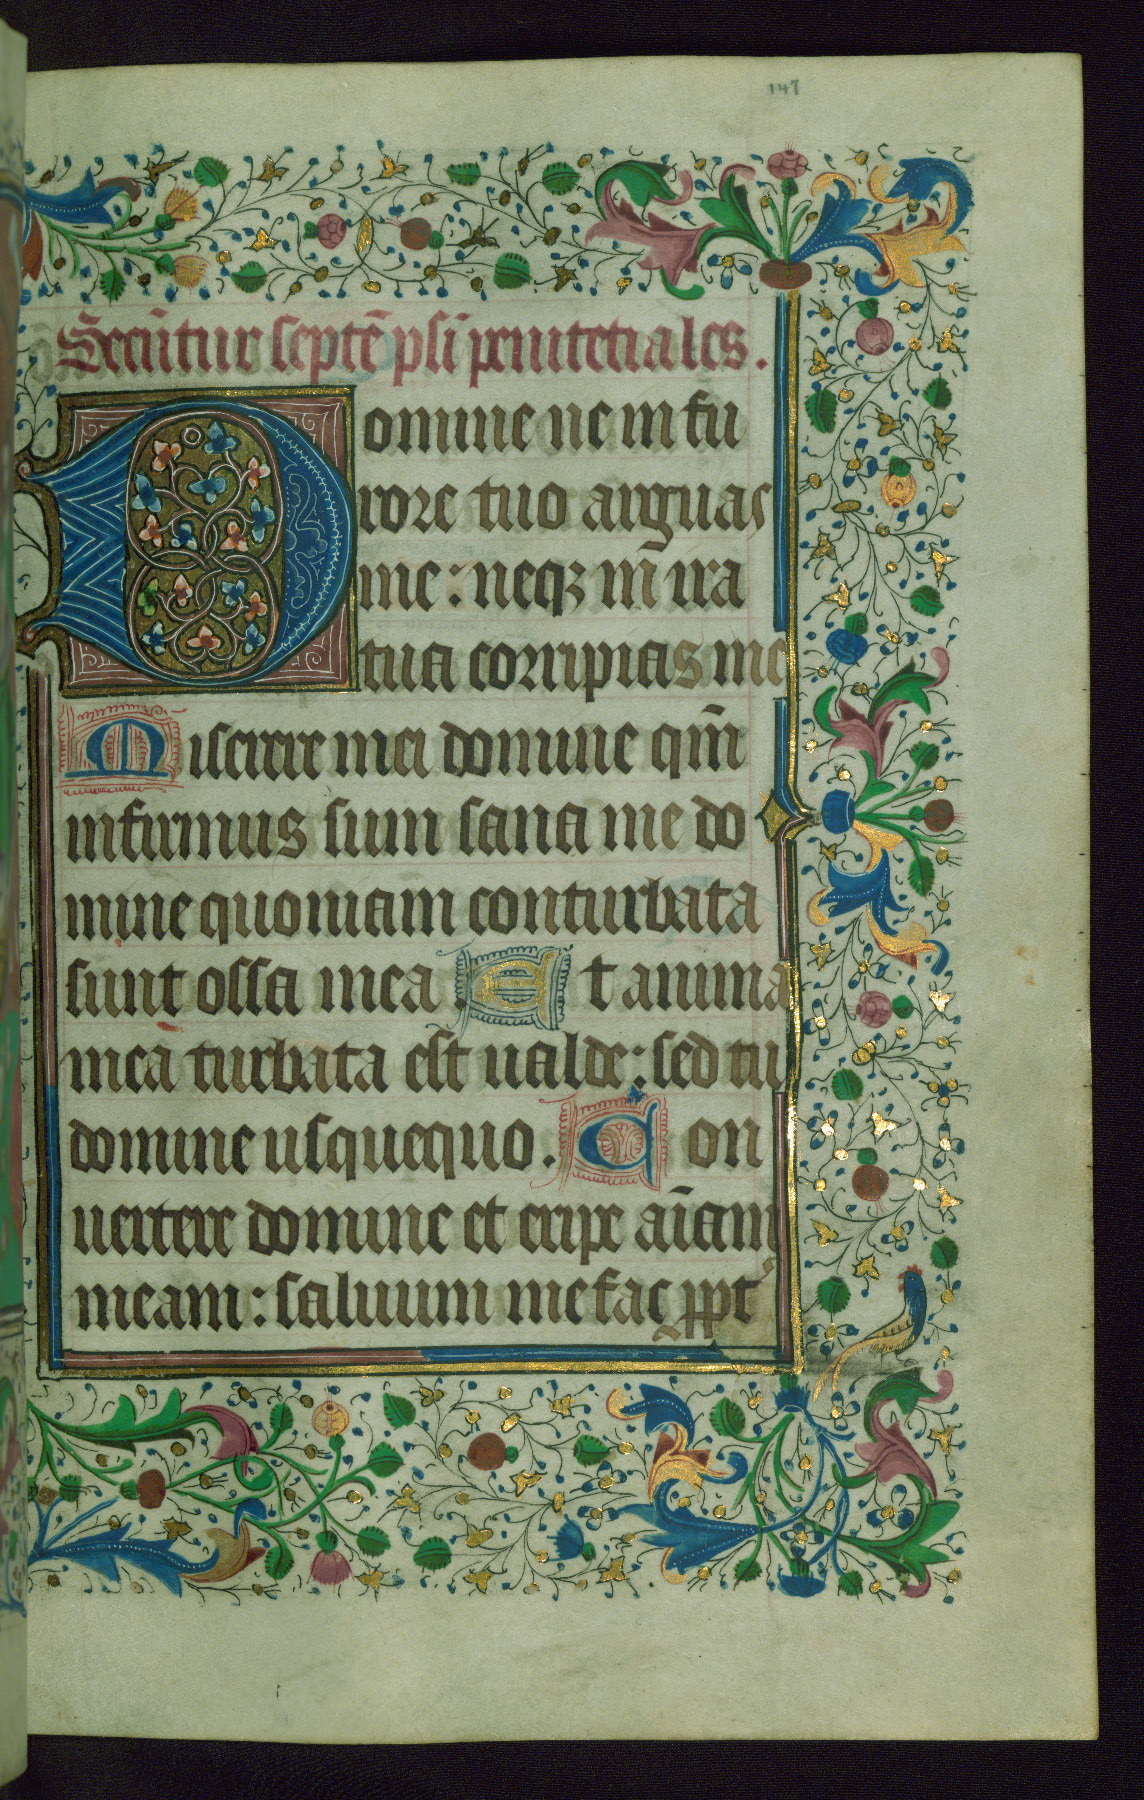 147
Secūtur septē psl̄i penitētiales.
Domine ne in fu
rore tuo arguas
me: neqꝫ in ira
tua corripias me
Miserere mei domine qm̄
infirmus sum sana me do
mine quoniam conturbata
sunt ossa mea Et anima
mea turbata est ualde: sed tu
domine usquequo. Con
uertere domine et eripe aīam
meam: saluum me fac ꝓpt᷑